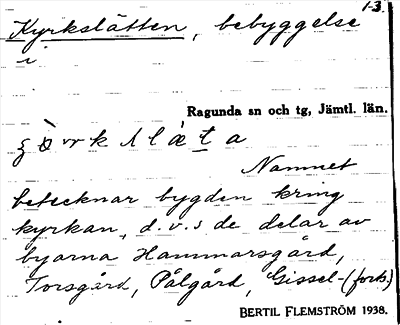 1-3.
Kyrkslätten, bebyggelse
i
Ragunda sn och tg, Jämtl. län.
Namnet
betecknar bygden kring
kyrkan, d.v.s de delar av
byarna Hammarsgård,
Torsgård, Pålgård, Gissel-(forts.)
BERTIL FLEMSTRÖM 1938.